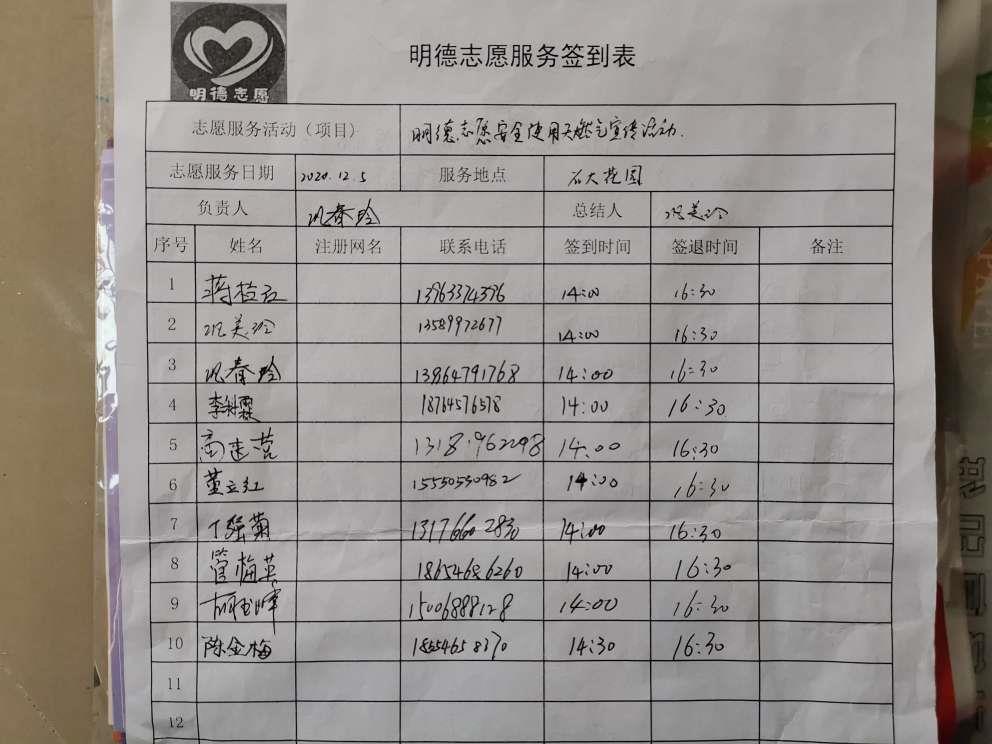 明德志愿
明德志愿服务签到表
志愿服务活动（项目） 明德志愿安全使用天然气宣传活动.
志愿服务日期 2020.12.5 服务地点 石大花园
负责人 巩春玲 总结人 巩美玲
序号 姓名 注册网名 联系电话 签到时间 签退时间 备注
1 蒋桂红 13963374396 14:00 16:30
2 巩美玲 13589972677 14:00 16:30
3 巩春玲 13864791768 14:00 16:30
4 李树霖 18764576578 14:00 16:30
5 高建营 14:00 16:30
6 董立红 15550530982 14:00 16:30
7 丁强菊 13176602830 14:00 16:30
8 管梅英 18654686260 14:00 16:30
9 15006888128 14:00 16:30
10 陈金梅 18554658370 14:30 16:30
11
12